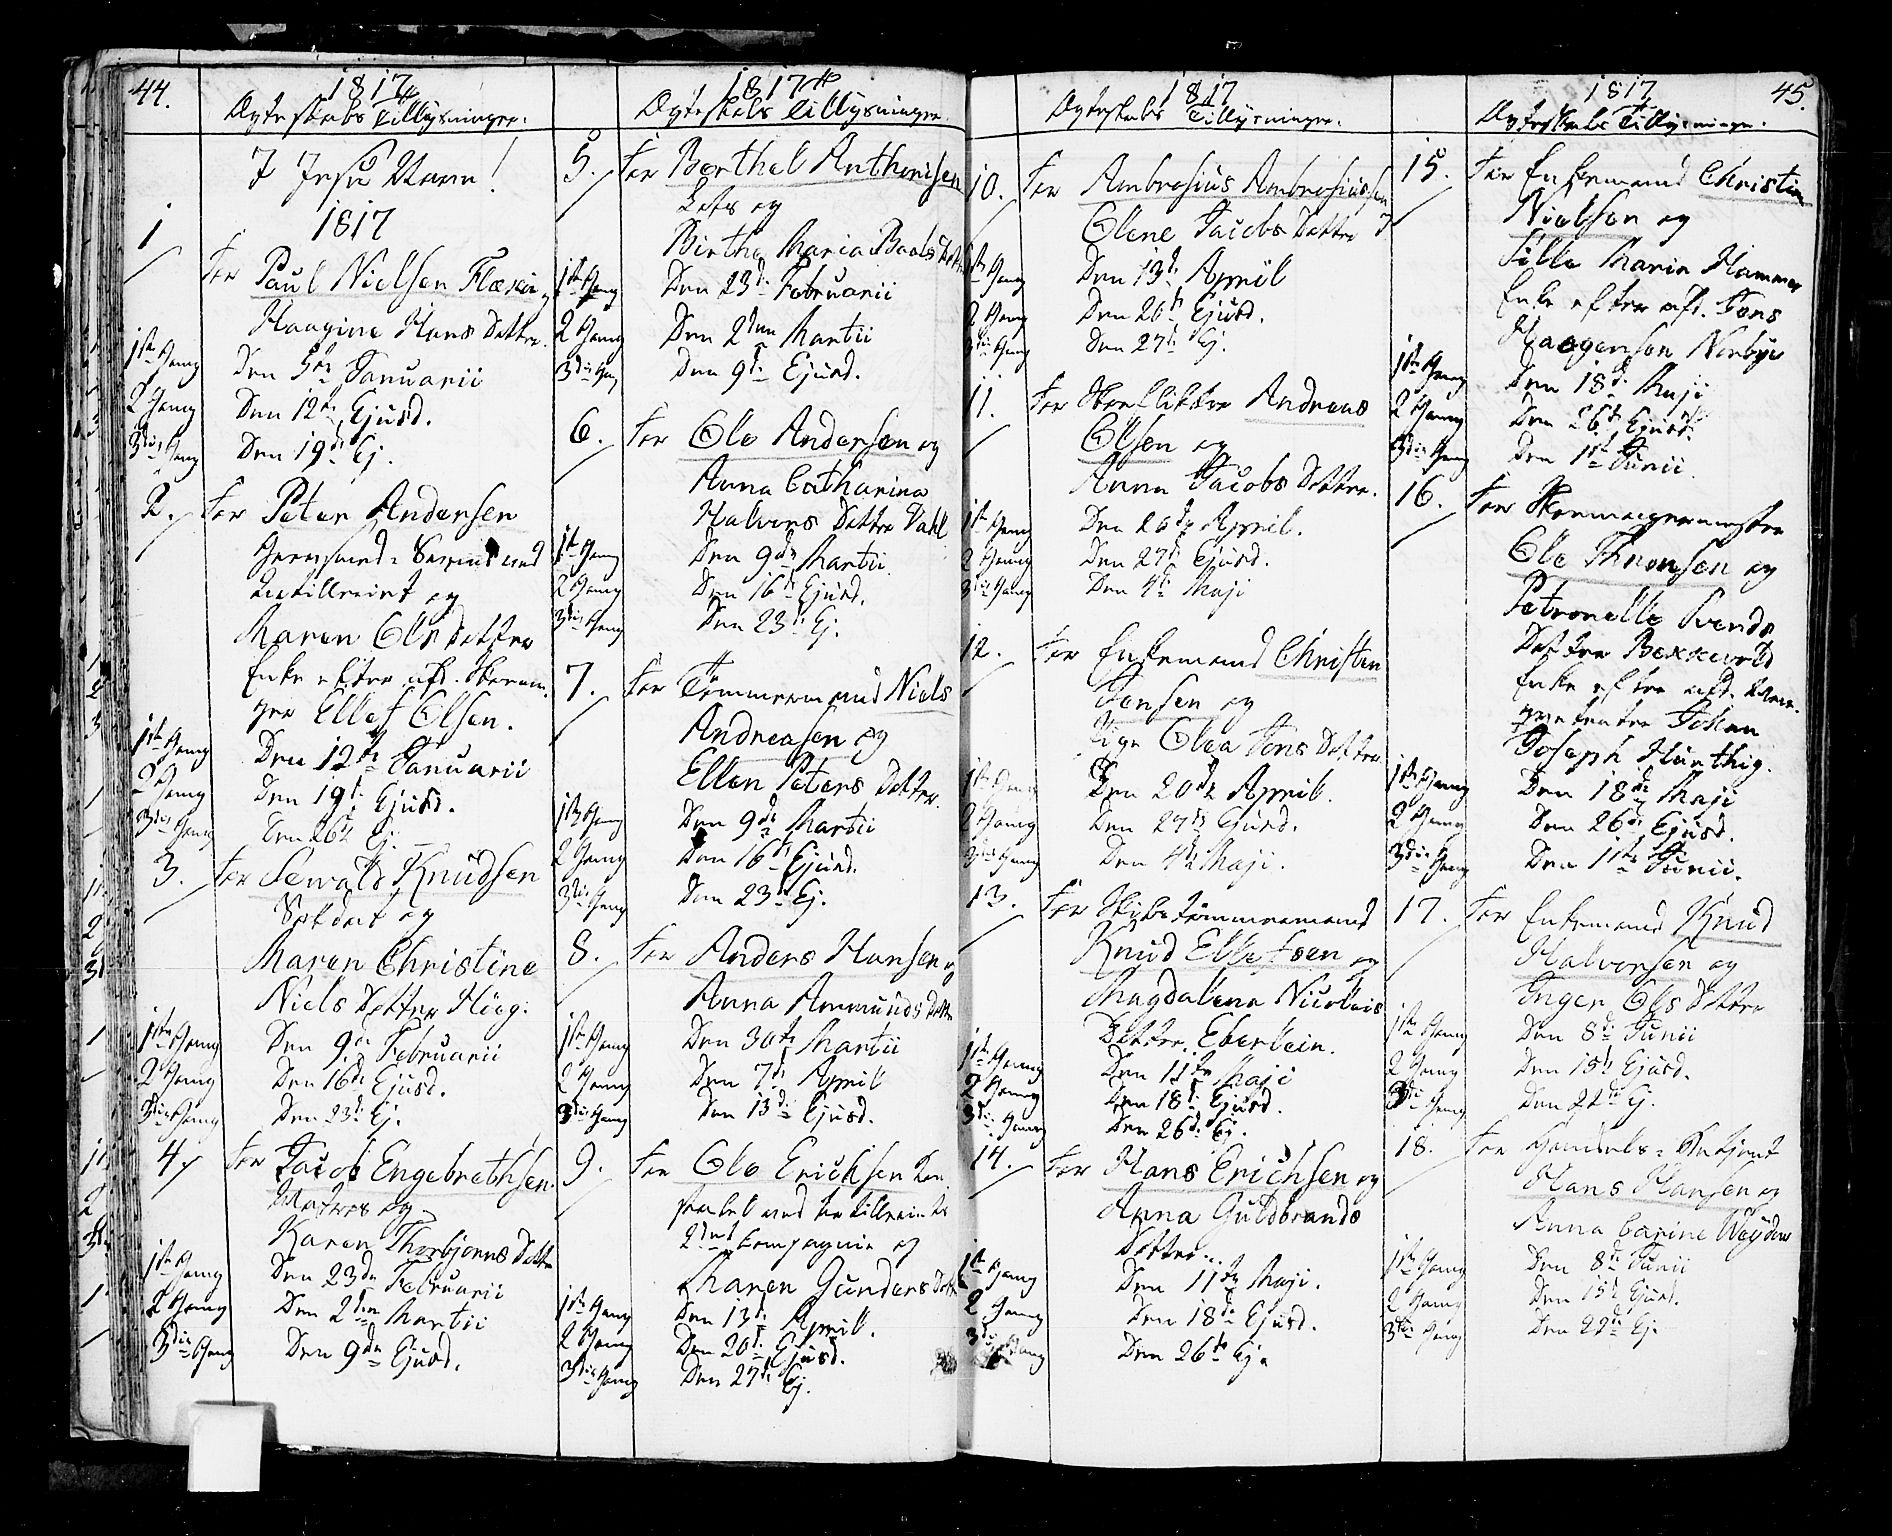 44.
1817
Ægteskabs Tillysninger.
I Jesu Navn!
1817
1
For Paul Nielsen Flaxen og
Haagine Hans Datter.
1ste Gang Den 5te Januarii
2 Gang Den 12te Ejusd.
3die Gang Den 19de Ej.
2. For Peter Andersen
og
Maren Ols Datter
Enke efter afd.
Ellef Olsen.
1ste Gang Den 12te Januarii
2 Gang Den 19de Ejusd.
3die Gang Den 26de Ej.
3. For Sewald Knudsen
Soldat og
Maren Christine
Niels Datter Höeg.
1ste Gang Den 9de Februarii
2 Gang Den 16de Ejusd.
3die Gang Den 23de Ej.
4. For Jacob Engebrethsen
Matros og
Karen Thorbjørns Datter
1ste Gang Den 23de Februarii
2 Gang Den 2den Martii
3die Gang Den 9de Ejusd.
1817
Ægteskabs Tillysninger.
5. For Berthel Anthonisen
Lods og
Birthe Maria Boels Datter
1ste Gang Den 23de Februarii
2 Gang Den 2den Martii
3die Gang Den 9de Ejusd.
6. For Ole Andersen og
Anna Catharina
Halvors Datter Dahl
1ste Gang Den 9de Martii
2 Gang Den 16de Ejusd.
3die Gang Den 23de Ej.
7. For Tömmermand Niels
Andreasen og
Ellen Peters Datter.
1ste Gang Den 9de Martii
2 Gang Den 16de Ejusd.
3die Gang Den 23de Ej.
8. For Anders Hansen og
Anna Ammunds Datter
1ste Gang Den 30te Martii
2 Gang Den 7de April
3die Gang Den 13de Ejusd.
9. For Ole Erichsen
2det Compagnie og
Maren Gunders Datter
1ste Gang Den 13de April.
2 Gang Den 20de Ejusd.
3die Gang Den 27de Ej.
1817
Ægteskabs Tillysninger.
10. For Ambrosius Ambrosiussen
Olene Jacobs Datter
1ste Gang Den 13de April
2 Gang Den 26de Ejusd.
3die Gang Den 27de Ej.
11. For Skoeflikker Andreas
Olsen og
Anna Jacobs Datter.
1ste Gang Den 20de April.
2 Gang Den 27de Ejusd.
3die Gang Den 4de Maji
12. For Enkemand Christen
Jensen og
Pige Olea Jons Datter
1ste Gang Den 20de April.
2 Gang Den 27de Ejusd.
3die Gang Den 4de Maji.
13. For Skibstömmermand
Knud Ellefsen og
Magdalena Nicolais
Datter Eberlein.
1ste Gang Den 11te Maji
2 Gang Den 18de Ejusd.
3die Gang Den 26de Ej.
14. For Hans Erichsen og
Anna Guldbrands
Datter.
1ste Gang Den 11te Maji.
2 Gang Den 18de Ejusd.
3die Gang Den 26de Ej.
1817
45.
Ægteskabs Tillysninger.
15. For Enkemand Christian
Nielsen og
Sille Maria Hammer
Enke efter afd. Jens
Haagensen Norbye
1ste Gang Den 18de Maji
2 Gang Den 26de Ejusd.
3die Gang Den 1ste Junii
16. For
Ole Thronsen og
Petronelle Svends
Datter Bekkevold
Enke efter afd.
Johan
Joseph Hurthig.
1ste Gang Den 18de Maji
2 Gang Den 26de Ejusd.
3die Gang Den 1ste Junii.
17. For Enkemand Knud
Halvorsen og
Inger Ols Datter
1ste Gang Den 8de Junii
2 Gang Den 15de Ejusd.
3die Gang Den 22de Ej.
18. For Handels-
Hans Hansen og
Anna Carine
1ste Gang Den 8de Junii
2 Gang Den 15de Ejusd.
3die Gang Den 22de Ej.